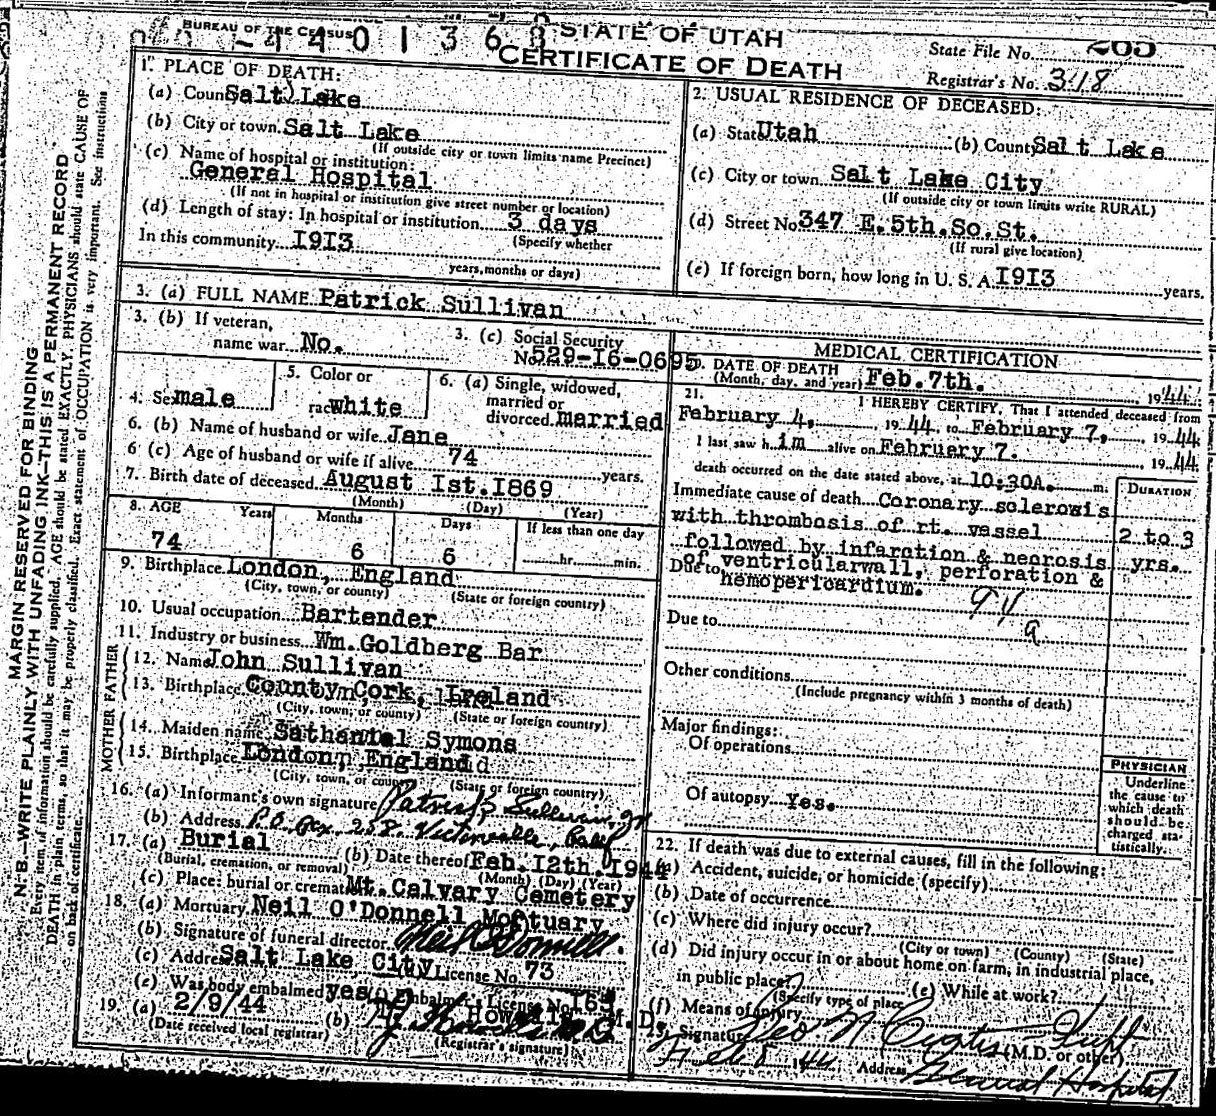 BUREAU OF THE CENSUS
STATE OF UTAH
CERTIFICATE OF DEATH
State File No. 265
Registrar's No. 318
MARGIN RESERVED FOR BINDING
N. B.—WRITE PLAINLY WITH UNFADING INK—THIS IS A PERMANENT RECORD
Every item of information should be carefully supplied. AGE should be stated EXACTLY. PHYSICIANS should state CAUSE OF
DEATH in plain terms, so that it may be properly classified. Exact statement of OCCUPATION is very important. See instructions
on back of certificate.
1. PLACE OF DEATH:
(a) County Salt Lake
(b) City or town Salt Lake
(If outside city or town limits name Precinct)
(c) Name of hospital or institution:
General Hospital
(If not in hospital or institution give street number or location)
(d) Length of stay: In hospital or institution 3 days
(Specify whether
In this community I9I3
years, months or days)
2. USUAL RESIDENCE OF DECEASED:
(a) State Utah (b) County Salt Lake
(c) City or town Salt Lake City
(If outside city or town limits write RURAL)
(d) Street No 347 E. 5th.So.St.
(If rural give location)
(e) If foreign born, how long in U. S. A. I9I3 years.
3. (a) FULL NAME Patrick Sullivan
3. (b) If veteran,
name war No.
3. (c) Social Security
No. 529-I6-0695
4. Sex male
5. Color or
race white
6. (a) Single, widowed,
married or
divorced married
6. (b) Name of husband or wife Jane
6 (c) Age of husband or wife if alive 74 years.
7. Birth date of deceased August Ist.I869
(Month) (Day) (Year)
8. AGE Years Months Days If less than one day
74 6 6 hr. min.
9. Birthplace London, England
(City, town, or county) (State or foreign country)
10. Usual occupation Bartender
11. Industry or business Wm.Goldberg Bar
FATHER
12. Name John Sullivan
13. Birthplace County Cork, Ireland
(City, town, or county) (State or foreign country)
MOTHER
14. Maiden name Sathaniel Symons
15. Birthplace London, England
(City, town, or county) (State or foreign country)
16. (a) Informant's own signature Patrick Sullivan, Jr
(b) Address P.O. Box 258 Victorville, Calif
17. (a) Burial (b) Date thereof Feb. I2th.I944
(Burial, cremation, or removal) (Month) (Day) (Year)
(c) Place: burial or cremation Mt. Calvary Cemetery
18. (a) Mortuary Neil O'Donnell Mortuary
(b) Signature of funeral director Neil O'Donnell.
(c) Address Salt Lake City License No. 73
(e) Was body embalmed yes Embalmer's License No.
19. (a) 2/9/44 (b) M.D.
(Date received local registrar) (Registrar's signature)
MEDICAL CERTIFICATION
20. DATE OF DEATH
(Month, day, and year) Feb.7th. 1944
21. I HEREBY CERTIFY, That I attended deceased from
February 4, 1944 to February 7, 1944
I last saw him alive on February 7. 1944
death occurred on the date stated above, at 10:30A. m.
DURATION
Immediate cause of death Coronary sclerosis
with thrombosis of rt. vessel 2 to 3
followed by infarction & necrosis yrs.
Due to of ventricularwall, perforation &
hemopericardium.
94 a
Due to
Other conditions
(Include pregnancy within 3 months of death)
Major findings:
Of operations
Of autopsy Yes.
PHYSICIAN
Underline
the cause to
which death
should be
charged sta-
tistically.
22. If death was due to external causes, fill in the following:
(a) Accident, suicide, or homicide (specify)
(b) Date of occurrence
(c) Where did injury occur?
(City or town) (County) (State)
(d) Did injury occur in or about home on farm, in industrial place,
in public place?
(Specify type of place) (e) While at work?
(f) Means of injury
Signature Leo N Curtis Supt (M.D. or other)
Feb 8 '44 Address General Hospital